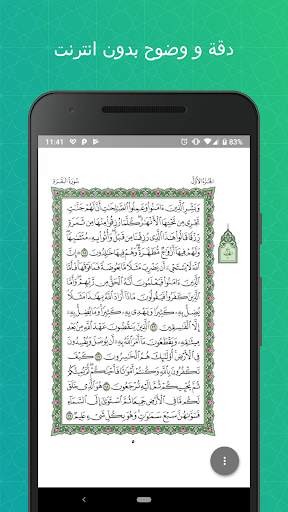 دقة و وضوح بدون انترنت
11:41
83%
سُورَةُ البَقَرَةِ
الجُزْءُ الأَوَّلُ
وَبَشِّرِ ٱلَّذِينَ ءَامَنُواْ وَعَمِلُواْ ٱلصَّٰلِحَٰتِ أَنَّ لَهُمۡ جَنَّٰتٖ
تَجۡرِي مِن تَحۡتِهَا ٱلۡأَنۡهَٰرُۖ كُلَّمَا رُزِقُواْ مِنۡهَا مِن ثَمَرَةٖ
رِّزۡقٗا قَالُواْ هَٰذَا ٱلَّذِي رُزِقۡنَا مِن قَبۡلُۖ وَأُتُواْ بِهِۦ مُتَشَٰبِهٗاۖ
وَلَهُمۡ فِيهَآ أَزۡوَٰجٞ مُّطَهَّرَةٞۖ وَهُمۡ فِيهَا خَٰلِدُونَ ٢٥ ۞ إِنَّ
ٱللَّهَ لَا يَسۡتَحۡيِۦٓ أَن يَضۡرِبَ مَثَلٗا مَّا بَعُوضَةٗ فَمَا فَوۡقَهَاۚ فَأَمَّا
ٱلَّذِينَ ءَامَنُواْ فَيَعۡلَمُونَ أَنَّهُ ٱلۡحَقُّ مِن رَّبِّهِمۡۖ وَأَمَّا
ٱلَّذِينَ كَفَرُواْ فَيَقُولُونَ مَاذَآ أَرَادَ ٱللَّهُ بِهَٰذَا مَثَلٗاۘ
يُضِلُّ بِهِۦ كَثِيرٗا وَيَهۡدِي بِهِۦ كَثِيرٗاۚ وَمَا يُضِلُّ بِهِۦٓ
إِلَّا ٱلۡفَٰسِقِينَ ٢٦ ٱلَّذِينَ يَنقُضُونَ عَهۡدَ ٱللَّهِ مِنۢ بَعۡدِ
مِيثَٰقِهِۦ وَيَقۡطَعُونَ مَآ أَمَرَ ٱللَّهُ بِهِۦٓ أَن يُوصَلَ وَيُفۡسِدُونَ
فِي ٱلۡأَرۡضِۚ أُوْلَٰٓئِكَ هُمُ ٱلۡخَٰسِرُونَ ٢٧ كَيۡفَ
تَكۡفُرُونَ بِٱللَّهِ وَكُنتُمۡ أَمۡوَٰتٗا فَأَحۡيَٰكُمۡۖ ثُمَّ يُمِيتُكُمۡ
ثُمَّ يُحۡيِيكُمۡ ثُمَّ إِلَيۡهِ تُرۡجَعُونَ ٢٨ هُوَ ٱلَّذِي خَلَقَ
لَكُم مَّا فِي ٱلۡأَرۡضِ جَمِيعٗا ثُمَّ ٱسۡتَوَىٰٓ إِلَى ٱلسَّمَآءِ
فَسَوَّىٰهُنَّ سَبۡعَ سَمَٰوَٰتٖۚ وَهُوَ بِكُلِّ شَيۡءٍ عَلِيمٞ ٢٩
٥